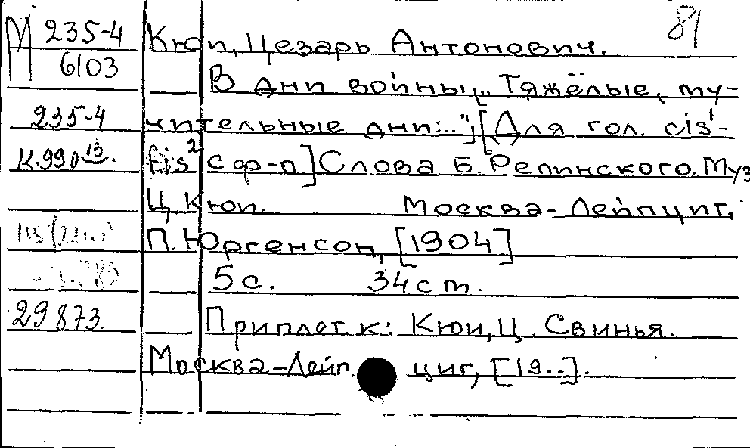 81
М 235-4 Кюи, Цезарь Антонович.
6103 В дни войны. „Тяжёлые, му-
235-4 чительные дни..." [Для гол. cis¹-
К.990 13. fis² с ф-п] Слова Б. Репинского. Муз
Ц. Кюи. Москва-Лейпциг,
П. Юргенсон, [1904]
5 с. 34 см.
29873. Приплет. к: Кюи, Ц. Свинья.
Москва-Лейп циг, [19..].